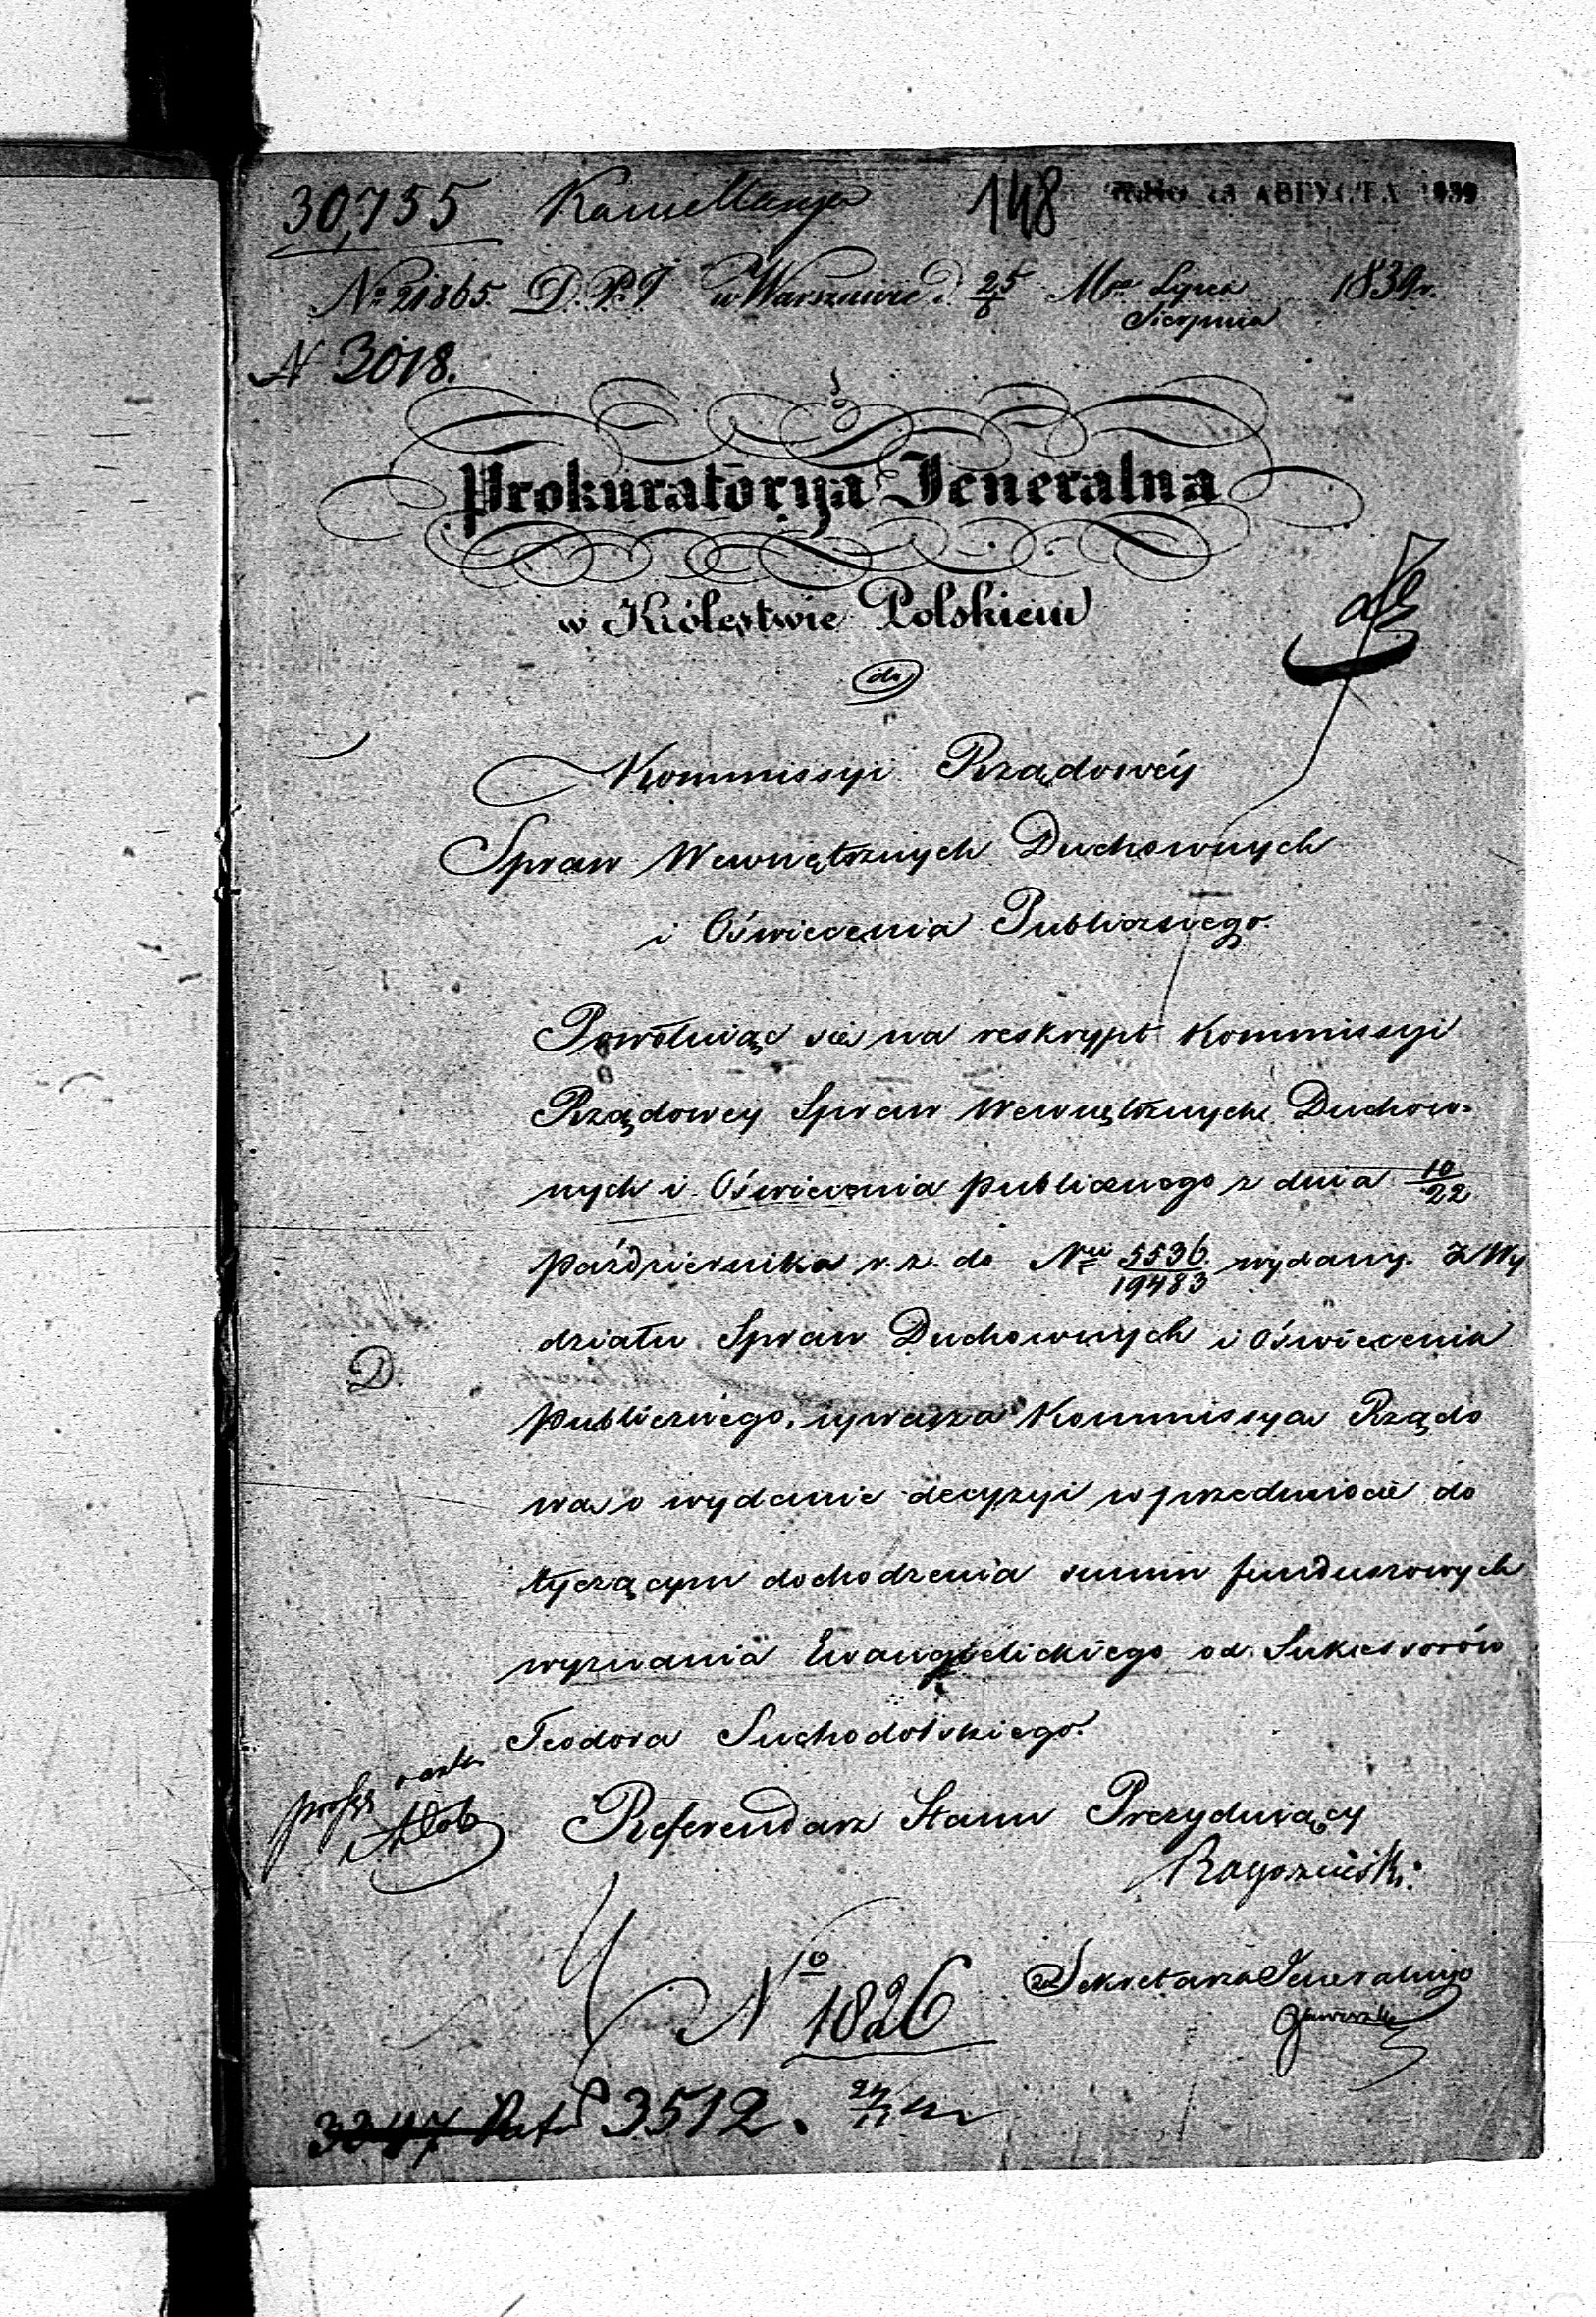 30,755 148 АВГУСТА 1839
No 21865. D.P.J w Warszawie d. 25/6 Mca Lipca Sierpnia 1839 r.
N 3018.
Prokuratorya Jeneralna
w Królestwie Polskiem
do
Kommissyi Rządowéy
Spraw Wewnętrznych Duchownych
i Oświecenia Publicznego.
Powołuiąc się na reskrypt Kommissyi
Rządowey Spraw Wewnętrznych Duchow-
nych i Oświecenia publicznego z dnia 10/22
października r. z. do Nru 5536/19483 wydany. Z Wy
działu Spraw Duchownych i Oświecenia
D.
publicznego, uprasza Kommissya Rządo
wa o wydanie decyzyi w przedmiocie do
tyczącym dochodzenia summ funduszowych
wyznania Ewangielickiego od Sukcessorów
Teodora Suchodolskiego.
Referendarz Stanu Prezyduiący
za Sekretarza Jeneralnego
No 1826
3512.